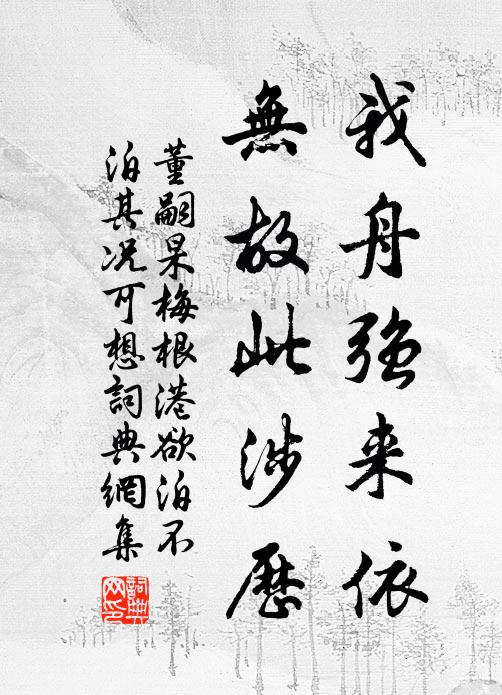 我舟強来依
無故此涉歷
董嗣杲梅根港欲泊不
泊其况可想詞典網集